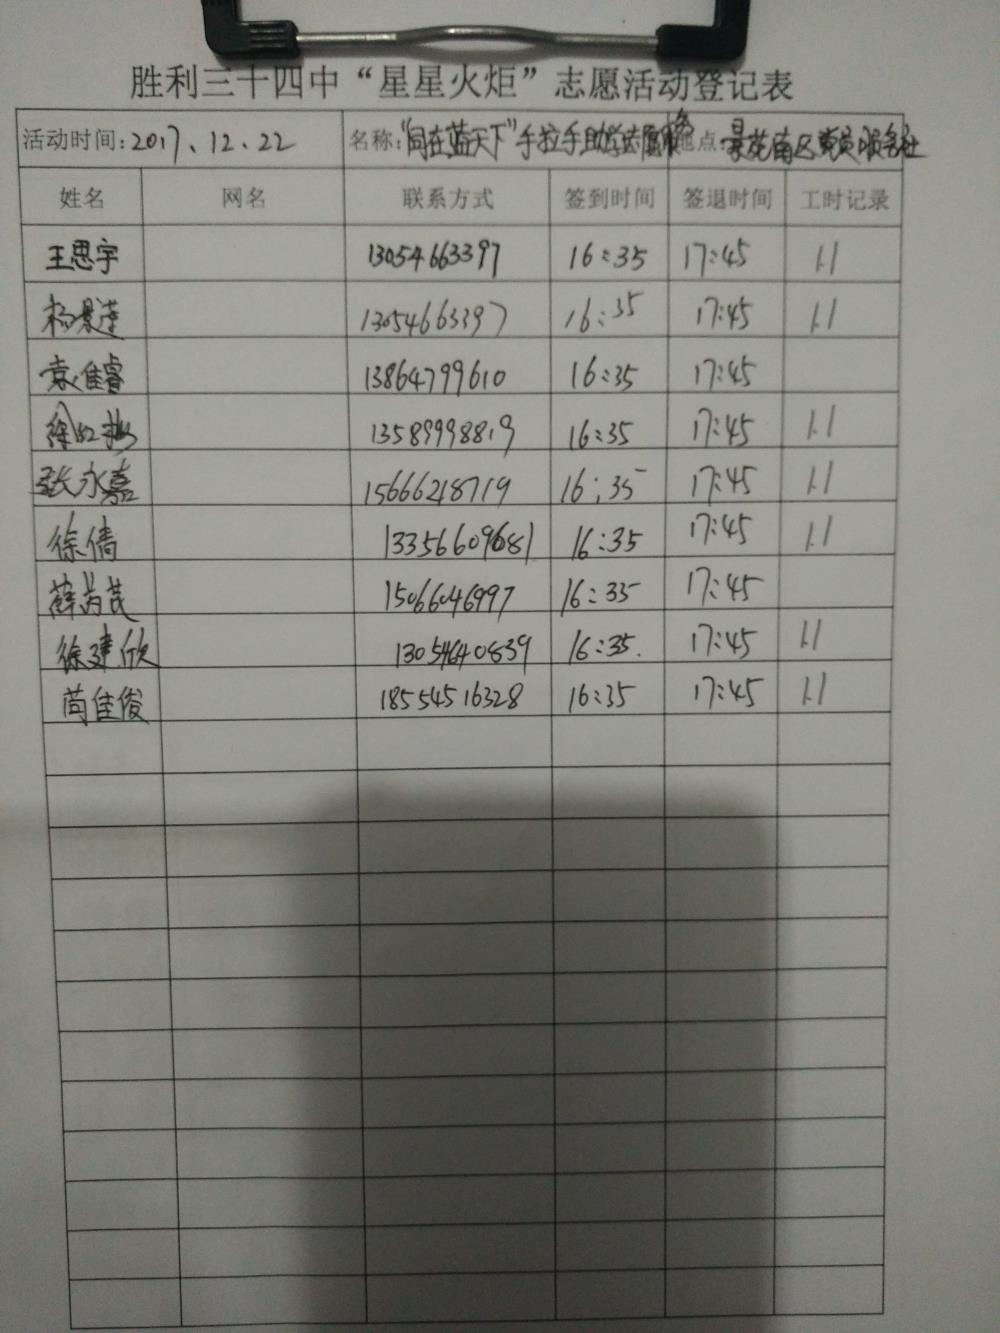 胜利三十四中“星星火炬”志愿活动登记表
活动时间：2017、12、22 名称：“同在蓝天下”手拉手助学志愿服务 地点：景苑南区党员服务社
姓名 网名 联系方式 签到时间 签退时间 工时记录
王思宇 13054663397 16:35 17:45 1.1
杨景 13054663397 16:35 17:45 1.1
袁佳睿 13864799610 16:35 17:45
徐 13589998819 16:35 17:45 1.1
张永嘉 15666218719 16:35 17:45 1.1
徐倩 13356609681 16:35 17:45 1.1
薛芮芪 15066046997 16:35 17:45
徐建欣 13054640839 16:35. 17:45 1.1
苘佳俊 18554516328 16:35 17:45 1.1